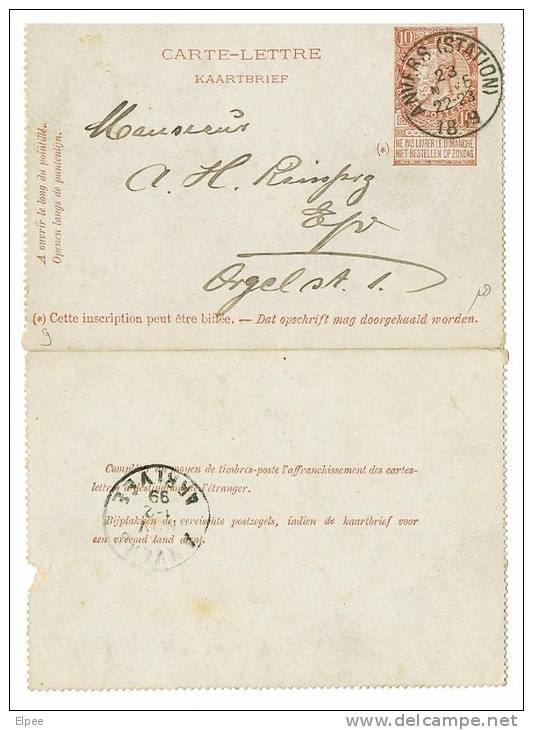 CARTE-LETTRE
KAARTBRIEF
10
ANVERS (STATION)
23
22-23
NE PAS LIVRER LE DIMANCHE
NIET BESTELLEN OP ZONDAG
(*)
A ouvrir le long du pointillé.
Openen langs de puntenlijn.
Monsieur
A. H.
E/V
Orgelst. 1.
(*) Cette inscription peut être biffée. — Dat opschrift mag doorgehaald worden.
9
Compléter au moyen de timbres-poste l'affranchissement des cartes-
lettres à destination de l'étranger.
Bijplakken de vereischte postzegels, indien de kaartbrief voor
een vreemd land dant.
ARRIVEE
99
1-2
ANVERS
Elpee
delcampe.net